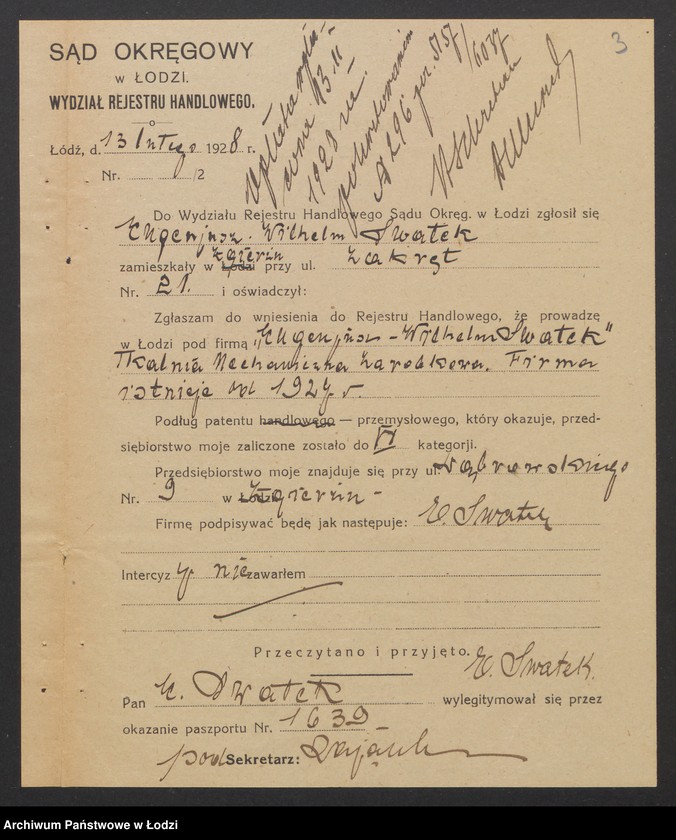 3
SĄD OKRĘGOWY
w ŁODZI.
WYDZIAŁ REJESTRU HANDLOWEGO.
Łódź, d. 13 lutego 1928 r.
Nr. /2
1928
A 296 poz.
Do Wydziału Rejestru Handlowego Sądu Okręg. w Łodzi zgłosił się
Eugenjusz-Wilhelm Swatek
Zgierzu
zamieszkały w Łodzi przy ul. Zakręt
Nr. 21. i oświadczył:
Zgłaszam do wniesienia do Rejestru Handlowego, że prowadzę
w Łodzi pod firmą „Eugenjusz-Wilhelm Swatek"
Tkalnia Mechaniczna Zarobkowa. Firma
istnieje od 1927 r.
Podług patentu handlowego — przemysłowego, który okazuje, przed-
siębiorstwo moje zaliczone zostało do VI kategorji.
Przedsiębiorstwo moje znajduje się przy ul. Dąbrowskiego
Nr. 9 w Łodzi Zgierzu -
Firmę podpisywać będę jak następuje: E. Swatek
Intercyzy nie zawarłem
Przeczytano i przyjęto.
E. Swatek.
Pan E. Swatek wylegitymował się przez
okazanie paszportu Nr. 1639
pod Sekretarz:
Archiwum Państwowe w Łodzi